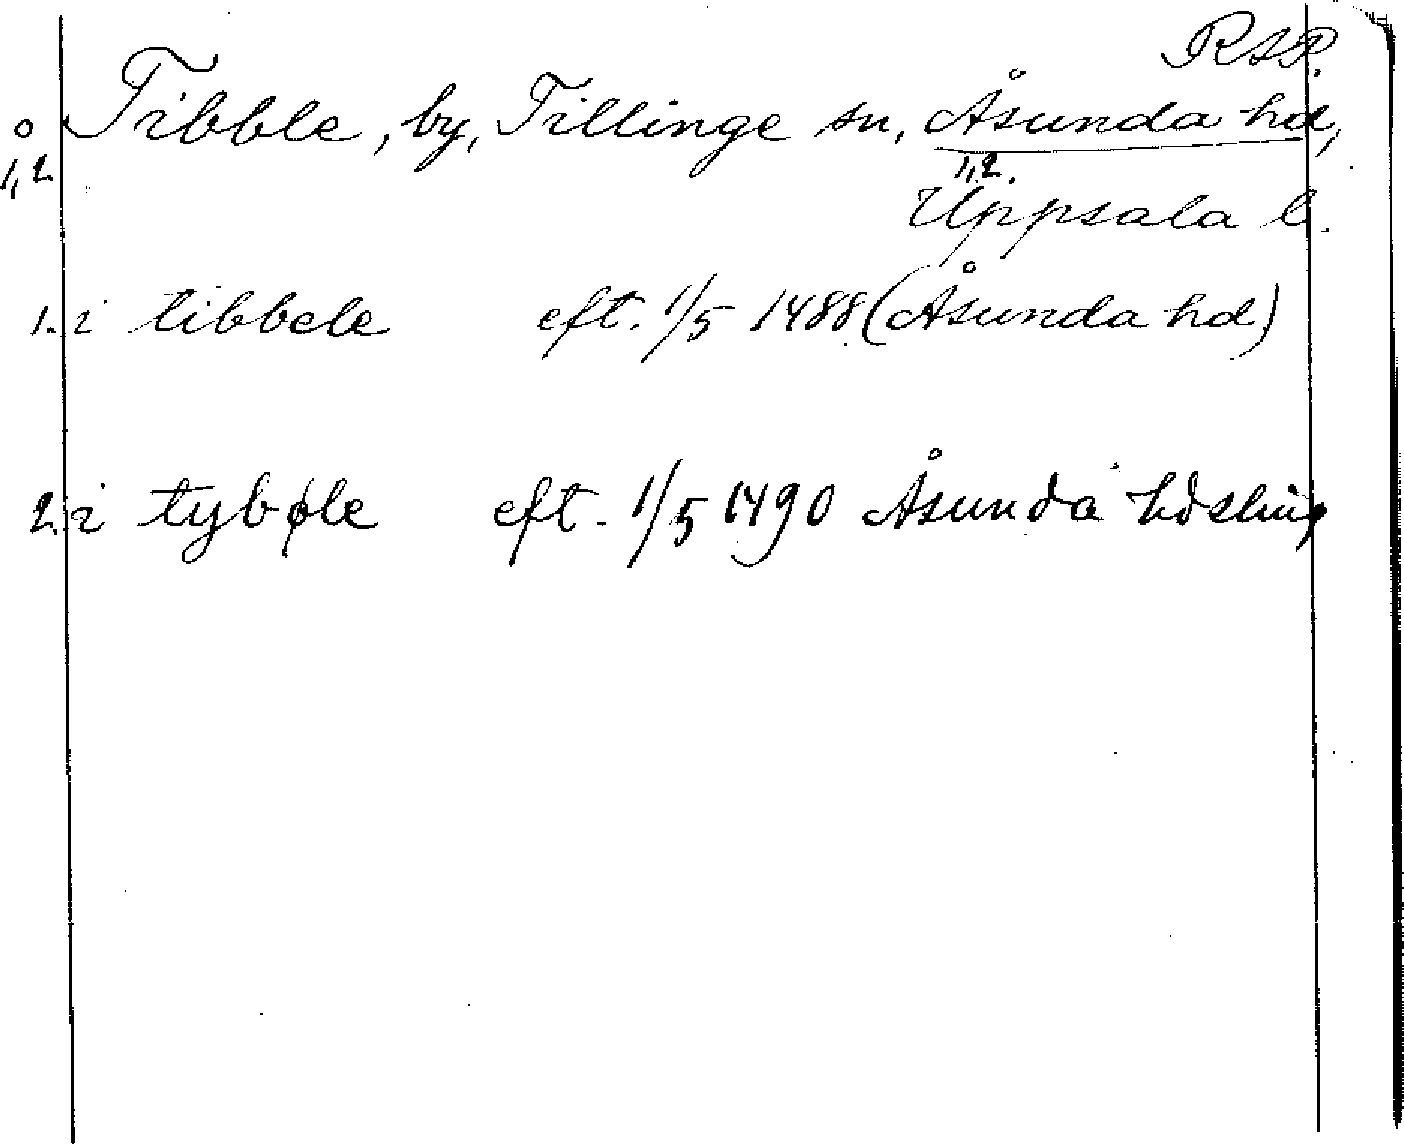 RAP.
o Tibble, by, Tillinge sn, Åsunda hd,
1,2. 1,2.
Uppsala l.
1. i tibbele eft. 1/5 1488 (Åsunda hd)
2. i tybøle eft. 1/5 1490 Åsunda